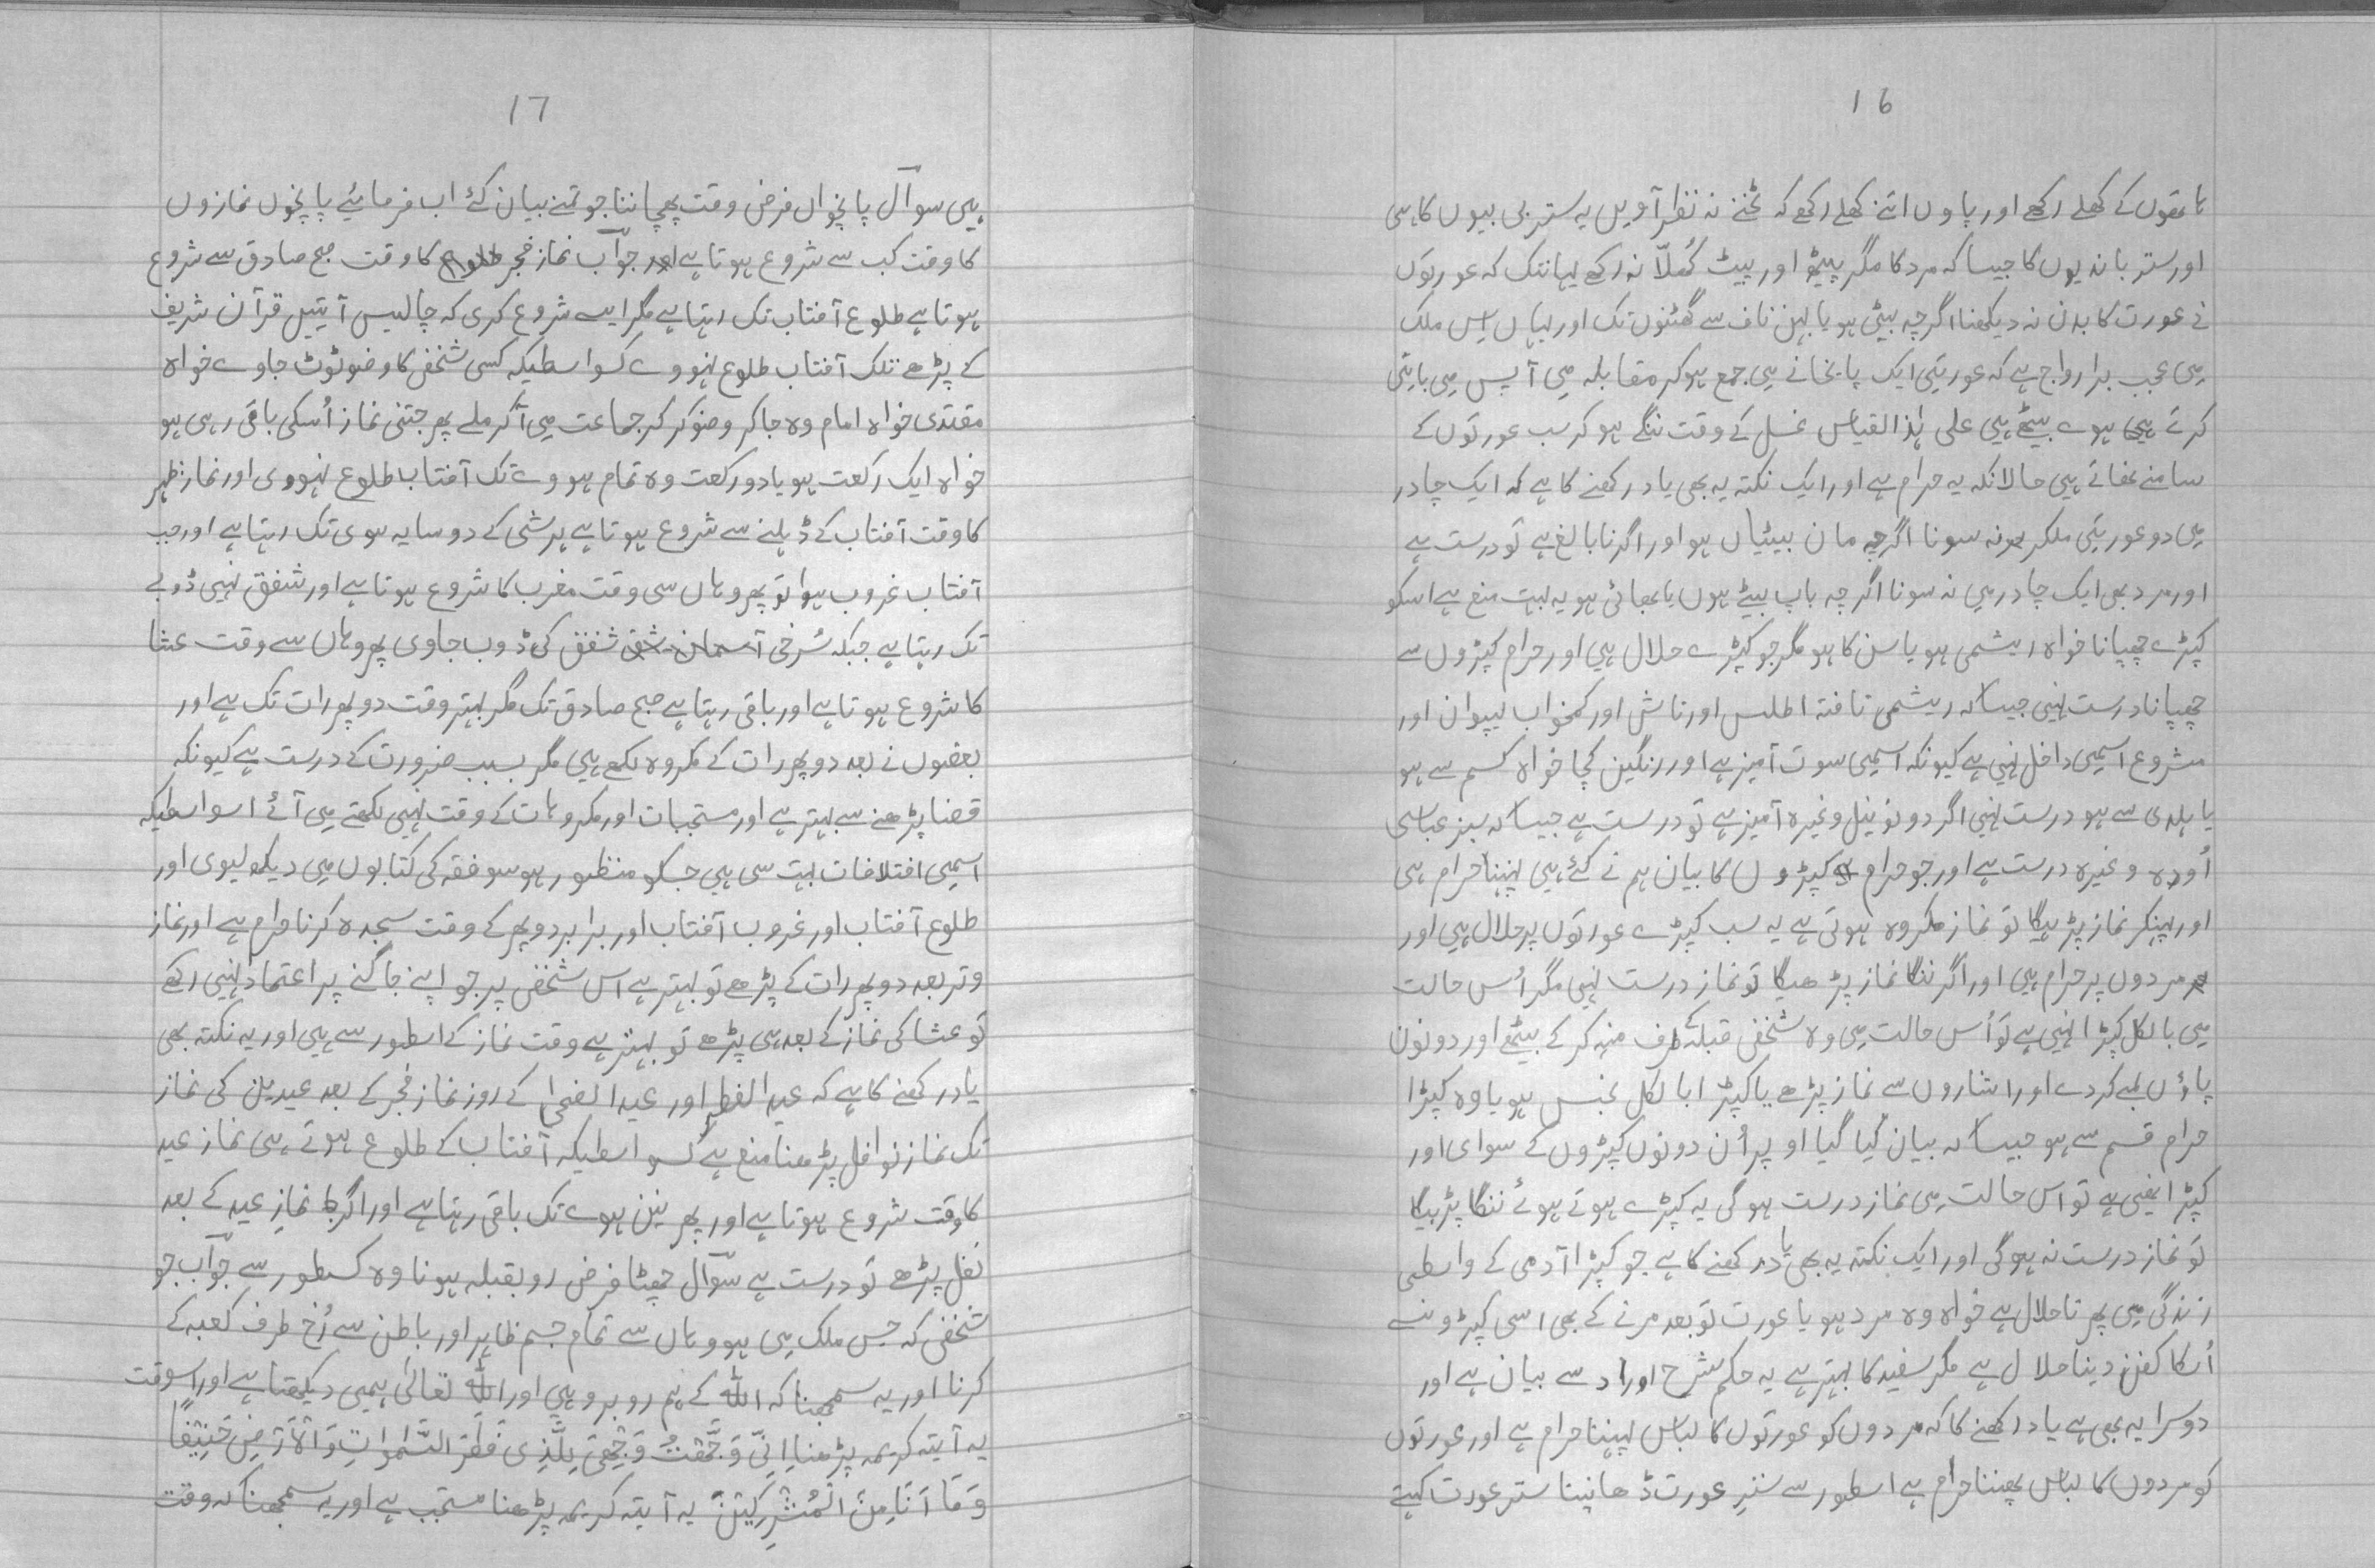 16
ہاتھوں کے کھلے رکھے اور پاوں اتنے کھلے رکھے کہ ٹخنے نہ نظر آویں یہ ستر بی بیوں کا ہی
اور ستر باندیوں کا جیسا کہ مرد کا مگر پیٹھ اور پیٹ کُھلّا نہ رکھے یہانتک کہ عورتوں
نے عورت کا بدن نہ دیکھنا اگرچہ بیٹی ہو یا بہن ناف سے گھٹنوں تک اور یہاں اِس ملک
میں عجب برا رواج ہے کہ عورتیں ایک پایخانے میں جمع ہو کر مقابلہ میں آپس میں باتیں
کرتے ہوے بیٹھے ہیں علی ہٰذا القیاس غسل کے وقت ننگے ہو کر سب عورتوں کے
سامنے نھاتے ہیں حالانکہ یہ حرام ہے اور ایک نکتہ یہ بھی یاد رکھنے کا ہے کہ ایک چادر
میں دو عورتیں ملکر نہ سونا اگرچہ مان بیٹیاں ہو اور اگر نابالغ ہے تو درست ہے
اور مرد بھی ایک چادر میں نہ سونا اگرچہ باپ بیٹے ہوں یا بھائی ہو یہ بہت منع ہے اسکو
کپڑے چھپانا خواہ ریشمی ہو یا سن کا ہو مگر جو کپڑے حلال ہیں اور حرام کپڑوں سے
چھپانا درست نہیں جیسا کہ ریشمی تافتہ اطلس اور تاش اور کمخواب اور
مشروع اسمیں داخل نہیں ہے کیونکہ اسمیں سوت آمیز ہے اور رنگین کچا خواہ کسم سے ہو
یا ہلدی سے ہو درست نہیں اگر دونو نیل وغیرہ آمیز ہے تو درست ہے جیسا کہ سبز عباسی
اُودہ وغیرہ درست ہے اور جو حرام کپڑوں کا بیان ہم نے کئے ہیں پہننا حرام ہی
اور پہنکر نماز پڑہیگا تو نماز مکروہ ہوتی ہے یہ سب کپڑے عورتوں پر حلال ہیں اور
مردوں پر حرام ہیں اور اگر ننگا نماز پڑھیگا تو نماز درست نہیں مگر اُس حالت
میں بالکل کپڑا نہیں ہے تو اُس حالت میں وہ شخص قبلہ کے طرف منہ کر کے بیٹھے اور دونون
پاؤں لمبے کر دے اور اشاروں سے نماز پڑھے یا کپڑا بالکل نجس ہو یا وہ کپڑا
حرام قسم سے ہو جیسا کہ بیان کیا گیا اوپر اُن دونوں کپڑوں کے سوای اور
کپڑا نہیں ہے تو اس حالت میں نماز درست ہوگی یہ کپڑے ہوتے ہوئے ننگا پڑہیگا
تو نماز درست نہ ہوگی اور ایک نکتہ یہ بھی یاد رکھنے کا ہے جو کپڑا آدمی کے واسطی
زندگی میں پھرنا حلال ہے خواہ وہ مرد ہو یا عورت تو بعد مرنے کے بھی اسی کپڑونسے
اُسکا کفن دینا حلال ہے مگر سفید کا بہتر ہے یہ حکم شرح اوراد سے بیان ہے اور
دوسرا یہ بھی ہے یاد رکھنے کا کہ مردوں کو عورتوں کا لباس پہننا حرام ہے اور عورتوں
کو مردوں کا لباس پھننا حرام ہے اسطور سے سترِ عورت ڈھانپنا ستر عورت کہتے
17
ہیں سوآل پانچواں فرض وقت پھچاننا جو تمنے بیان کئے اب فرمائیے پانچوں نمازوں
کا وقت کب سے شروع ہوتا ہے جوآب نماز فجر کا وقت صبح صادق سے شروع
ہوتا ہے طلوع آفتاب تک رہتا ہے مگر ایسے شروع کری کہ چالیس آیتیں قرآن شریف
کے پڑھے تلک آفتاب طلوع نہووے کسواسطیکہ کسی شخص کا وضو ٹوٹ جاوے خواہ
مقتدی خواہ امام وہ جا کر وضو کر کر جماعت میں آکر ملے پھر جتنی نماز اُسکی باقی رہی ہو
خواہ ایک رکعت ہو یا دو رکعت وہ تمام ہووے تک آفتاب طلوع نہووی اور نماز ظہر
کا وقت آفتاب کے ڈہلنے سے شروع ہوتا ہے ہر شی کے دو سایہ ہوی تک رہتا ہے اور جب
آفتاب غروب ہوا تو پھر وہاں سی وقت مغرب کا شروع ہوتا ہے اور شفق نہیں ڈوبے
تک رہتا ہے جبکہ سُرخی شفق کی ڈوب جاوی پھر وہاں سے وقت عشا
کا شروع ہوتا ہے اور باقی رہتا ہے صبح صادق تک مگر بہتر وقت دوپھر رات تک ہے اور
بعضوں نے بعد دوپھر رات کے مکروہ لکھے ہیں مگر بسبب ضرورت کے درست ہے کیونکہ
قضا پڑھنے سے بہتر ہے اور مستحبات اور مکروہات کے وقت نہیں لکھتے میں آئے اسواسطیکہ
اسمیں اختلافات بہت سی ہیں جسکو منظور ہو سو فقہ کی کتابوں میں دیکھ لیوی اور
طلوع آفتاب اور غروب آفتاب اور برابر دوپھر کے وقت سجدہ کرنا حرام ہے اور نماز
وتر بعد دوپھر رات کے پڑھے تو بہتر ہے اس شخص پر جو اپنے جاگنے پر اعتماد نہیں رکھے
تو عشا کی نماز کے بعد ہی پڑھے تو بہتر ہے وقت نماز کے اسطور سے ہیں اور یہ نکتہ بھی
یاد رکھنے کا ہے کہ عید الفطر اور عید الضحیٰ کے روز نماز فجر کے بعد عیدین کی نماز
تک نماز نوافل پڑھنا منع ہے کسواسطیکہ آفتاب کے طلوع ہوتے ہی نماز عید
کا وقت شروع ہوتا ہے اور پھر ہوے تک باقی رہتا ہے اور اگر نمازِ عید کے بعد
نفل پڑھے تو درست ہے سوآل چھٹا فرض رو بقبلہ ہونا وہ کسطور سے جوآب جو
شخص کہ جس ملک میں ہو وہاں سے تمام جسم ظاہر اور باطن سے رُخ طرف کعبہ کے
کرنا اور یہ سمجھنا کہ اللہ کے ہم روبرو ہیں اور اللہ تعالیٰ ہمیں دیکھتا ہے اور اسوقت
یہ آیتہ کریمہ پڑھنا اِنِّی وَجَّھْتُ وَجْھِیَ لِلَّذِی فَطَرَ السَّمٰوَاتِ وَالْاَرْضِ حَنِیْفًا
وَمَا اَنَا مِنَ الْمُشْرِکِیْنَ یہ آیتہ کریمہ پڑھنا مستحب ہے اور یہ سمجھنا کہ وقت